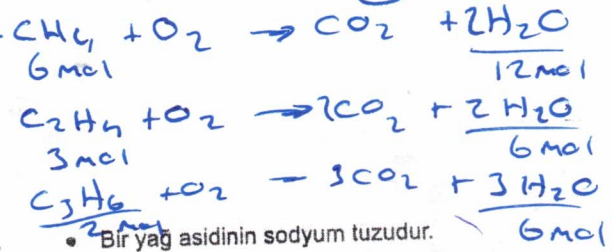 CH4 + O2 → CO2 + 2H2O
6 mol 12 mol
C2H4 + O2 → 2CO2 + 2H2O
3 mol 6 mol
C3H6 + O2 → 3CO2 + 3H2O
2 mol 6 mol
• Bir yağ asidinin sodyum tuzudur.